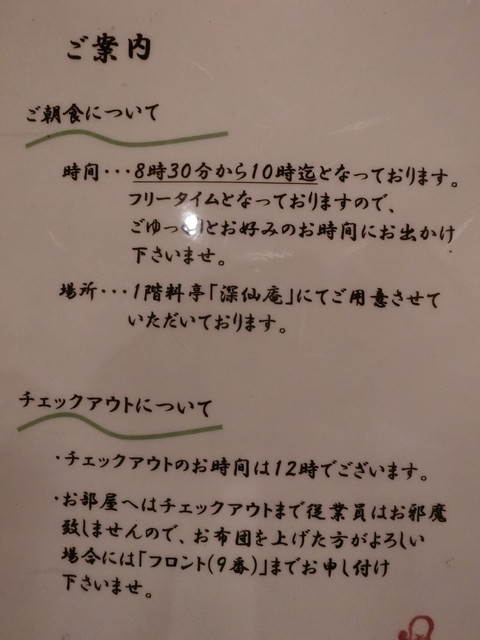 ご案内
ご朝食について
時間・・・8時30分から10時迄となっております。
フリータイムとなっておりますので、
ごゆっくりとお好みのお時間にお出かけ
下さいませ。
場所・・・1階料亭「深仙庵」にてご用意させて
いただいております。
チェックアウトについて
・チェックアウトのお時間は12時でございます。
・お部屋へはチェックアウトまで従業員はお邪魔
致しませんので、お布団を上げた方がよろしい
場合には「フロント(9番)」までお申し付け
下さいませ。